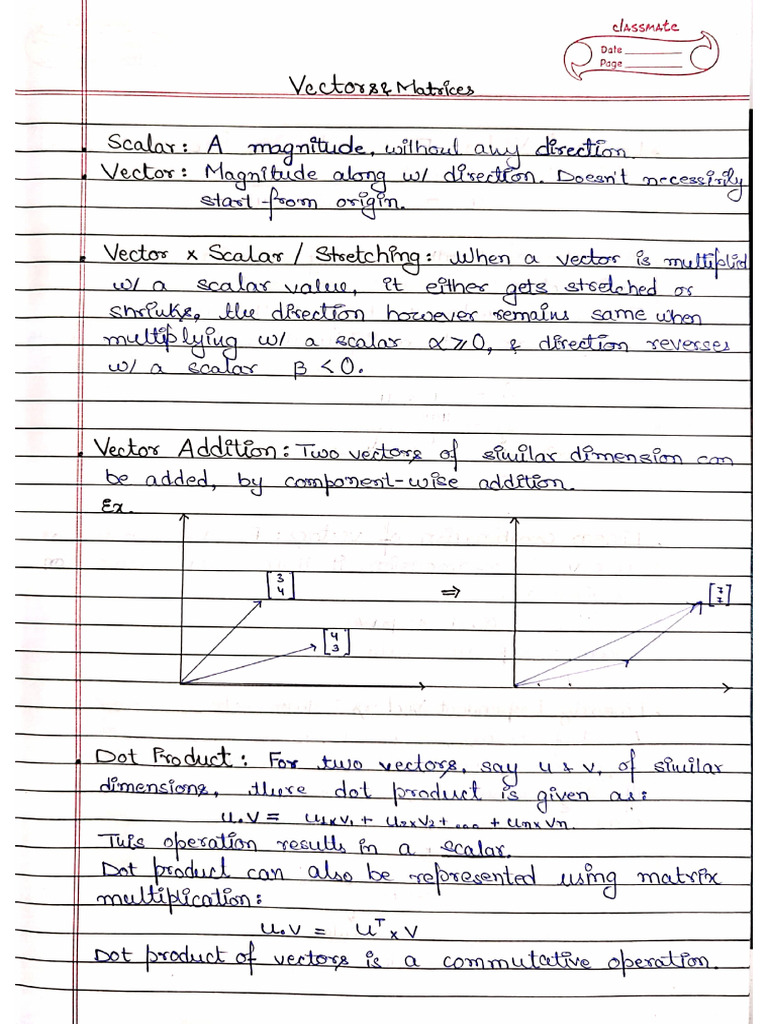 classmate
Date
Page
Vectors & Matrices
Scalar: A magnitude, without any direction.
Vector: Magnitude along w/ direction. Doesn't necessirily
start from origin.
Vector x Scalar / Stretching: When a vector is multiplied
w/ a scalar value, it either gets stretched or
shrinks, the direction however remains same when
multiplying w/ a scalar α ⩾ 0, & direction reverses
w/ a scalar β < 0.
Vector Addition: Two vectors of similar dimension can
be added, by component-wise addition.
Ex.
[3 4]
[4 3]
⇒
[7 7]
Dot Product: For two vectors, say u & v, of similar
dimensions, there dot product is given as:
u.v = u1xv1 + u2xv2 + ... + unxvn.
This operation results in a scalar.
Dot product can also be represented using matrix
multiplication:
u.v = u^T x v
Dot product of vectors is a commutative operation.